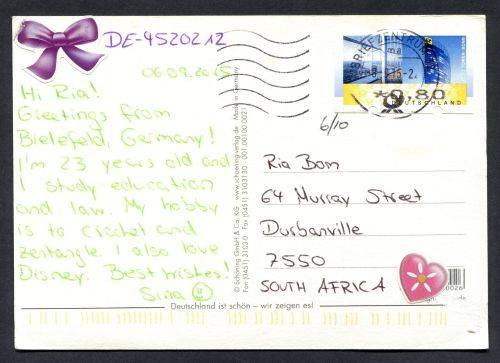 DE-4520212
06.08.2015
Hi Ria!
Greetings from
Bielefeld, Germany!
I'm 23 years old and
I study education
and law. My hobby
is to crochet and
zentangle. I also love
Disney. Best wishes!
Sina
BRIEFZENTRUM
*0,80
DEUTSCHLAND
6/10
Ria Bom
64 Murray Street
Durbanville
7550
SOUTH AFRICA
© Schöning GmbH & Co. KG · www.schoening-verlag.de · Made in Germany
Fon (0451) 3103 0 · Fax (0451) 3103130 · 001.00100.0021
Deutschland ist schön – wir zeigen es!